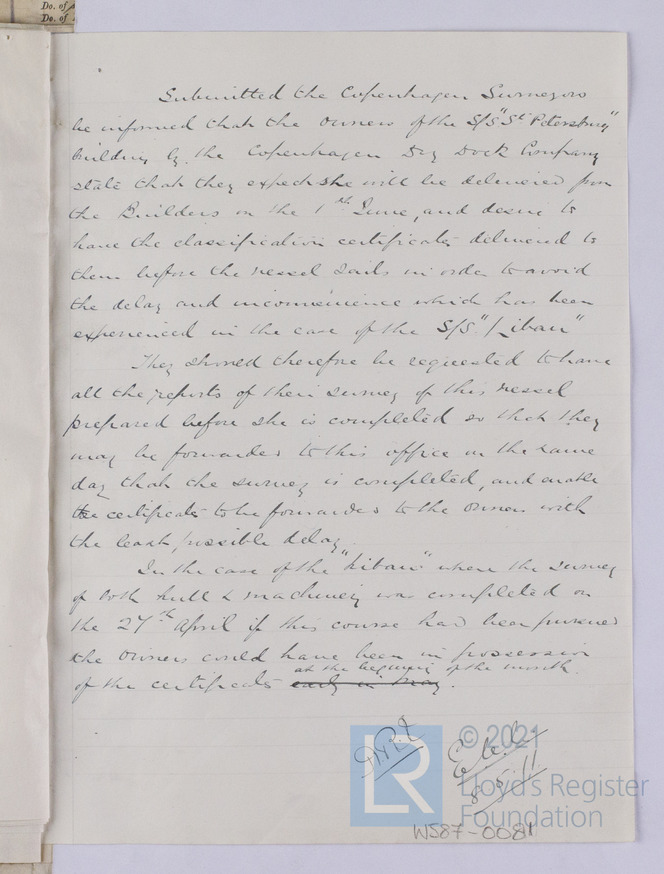 Do. of
Do. of
Submitted the Copenhagen Surveyors
be informed that the Owners of the S/S "St Petersburg"
building by the Copenhagen Dry Dock Company
state that they expect she will be delivered from
the Builders on the 1st June, and desire to
have the classification certificates delivered to
them before the vessel sails in order to avoid
the delay and inconvenience which has been
experienced in the case of the S/S "Libau"
They should therefore be requested to have
all the reports of their survey of this vessel
prepared before she is completed so that they
may be forwarded to this office on the same
day that the survey is completed, and enable
the certificates to be forwarded to the owners with
the least possible delay.
In the case of the "Libau" where the survey
of both hull & machinery was completed on
the 27th April if this course had been pursued
the owners could have been in possession
at the beginning of the month.
of the certificates early in May.
© 2021
LR
Lloyd's Register
Foundation
8.5.11
W587-0081